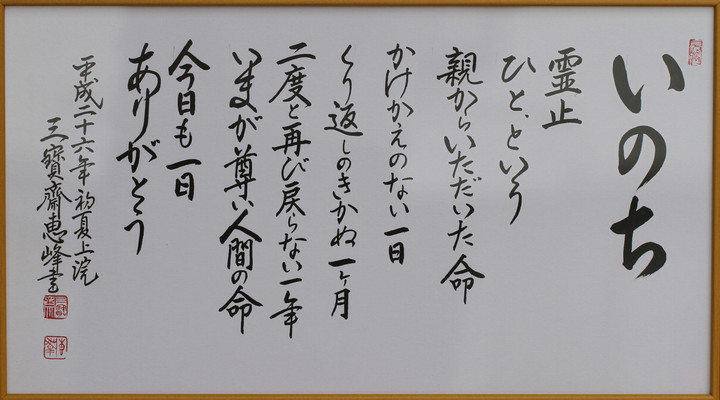 いのち
霊止
ひと、という
親からいただいた命
かけかえのない一日
くり返しのきかぬ一ヶ月
二度と再び戻らない一年
いまが尊い人間の命
今日も一日
ありがとう
平成二十六年初夏上浣
三寶齋恵峰書